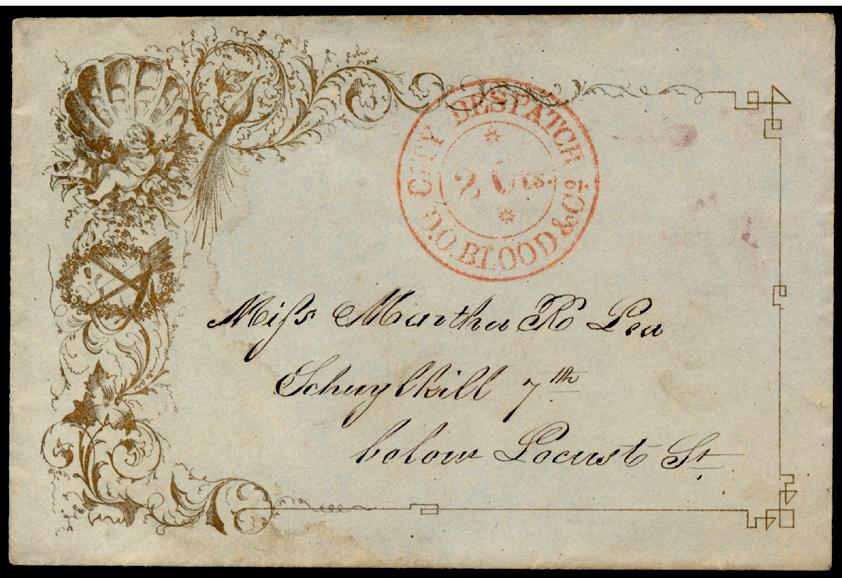 CITY DESPATCH
2 Cts.
D.O. BLOOD & Co.
Miſs Martha R Lea
Schuylkill 7th
below Locust St